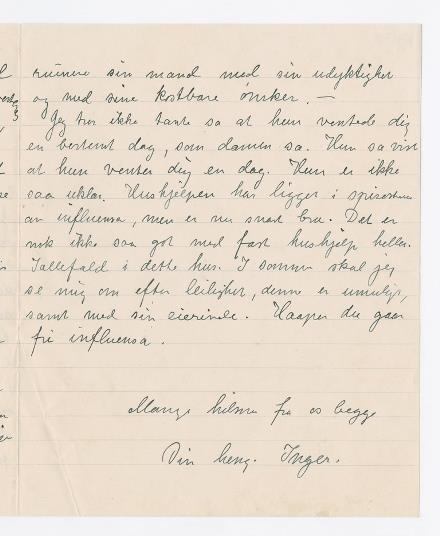 ruinere sin mand med sin udyktighet
og med sine kostbare ønsker. —
Jeg tror ikke tante sa at hun ventede dig
en bestemt dag, som damen sa. Hun sa vist
at hun venter dig en dag. Hun er ikke
saa uklar. Hushjelpen har ligget i spisestuen
av influensa, men er nu snart bra. Det er
nok ikke saa got med fast hushjelp heller.
Iallefald i dette hus. I sommer skal jeg
se mig om efter leilighet, denne er umulig,
samt med sin eierinde. Haaper du gaar
fri influensa.
Mange hilsner fra os begge
Din heng. Inger.